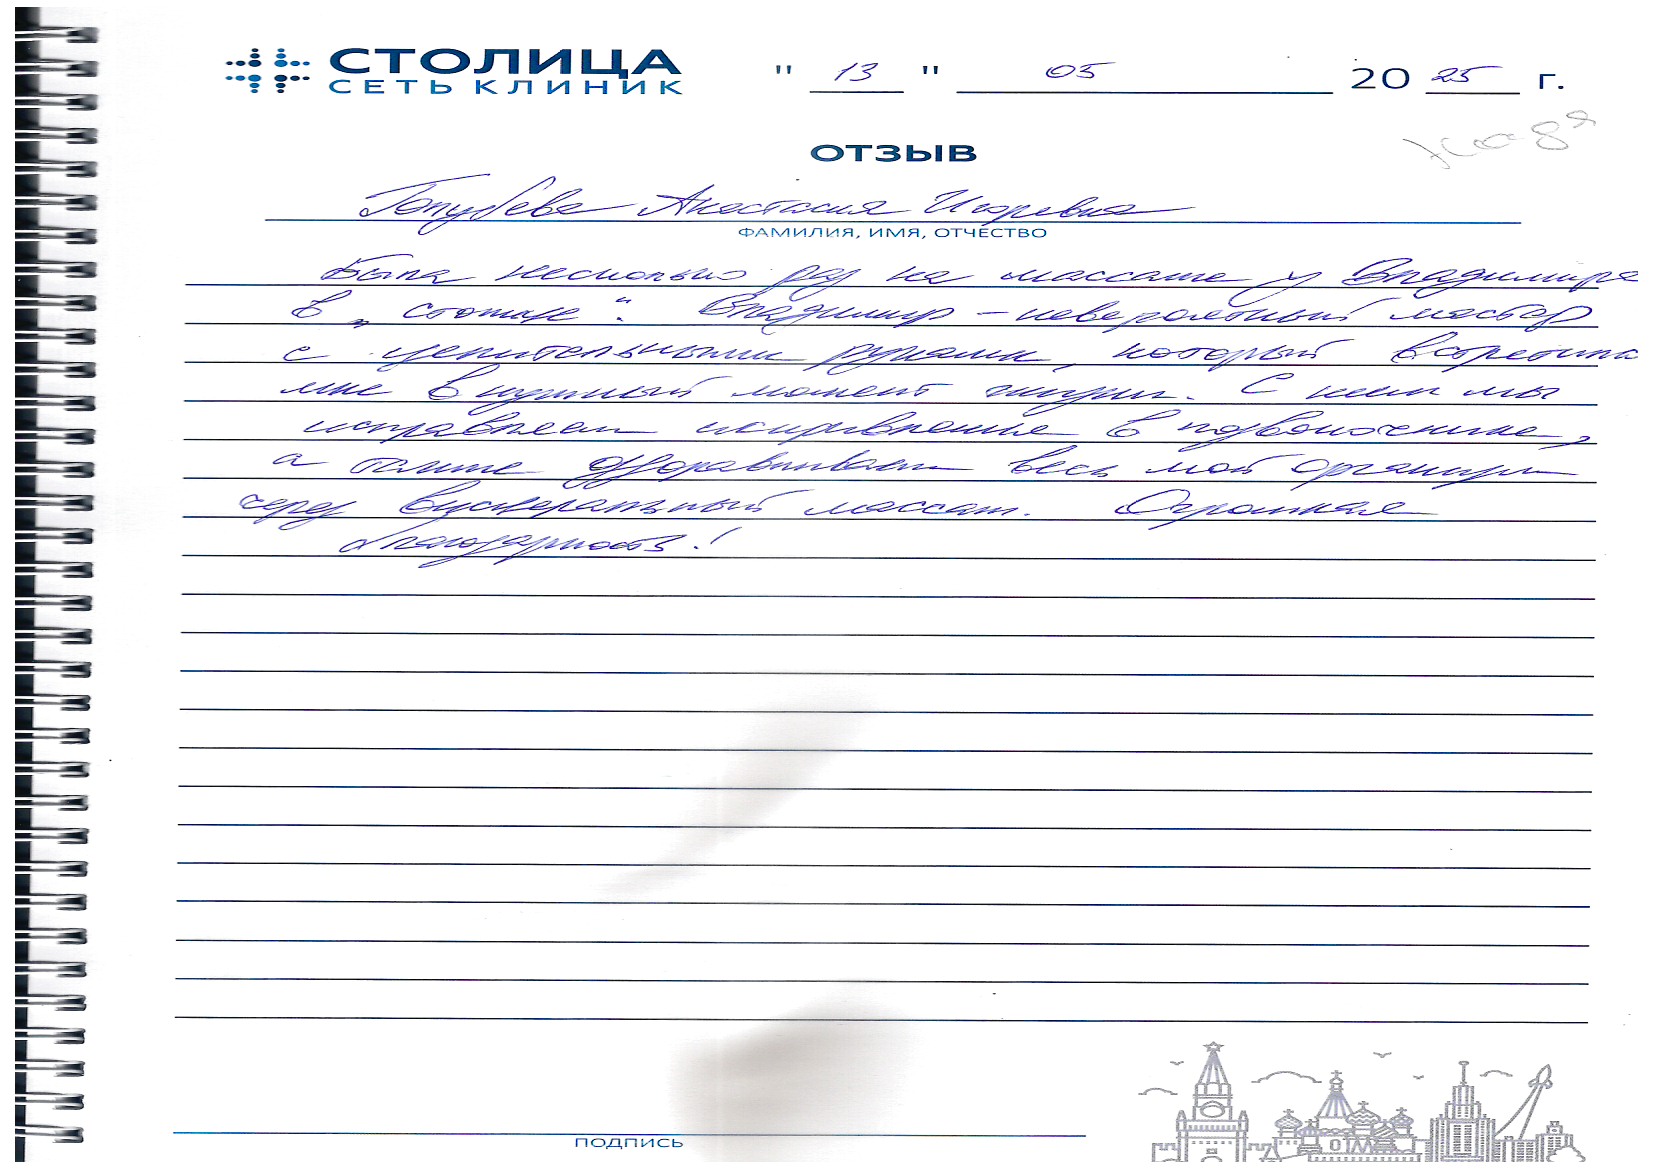 СТОЛИЦА
СЕТЬ КЛИНИК
" 13 " 05 2025 г.
ОТЗЫВ
Голубева Анастасия Игоревна
ФАМИЛИЯ, ИМЯ, ОТЧЕСТВО
Была несколько раз на массаже у Владимира
в „ столице ". Владимир – невероятный мастер
с целительными руками, который встретился
мне в нужный момент жизни. С ним мы
исправляем искривление в позвоночнике,
а также оздоравливаем весь мой организм
через висцеральный массаж. Огромная
благодарность!
ПОДПИСЬ